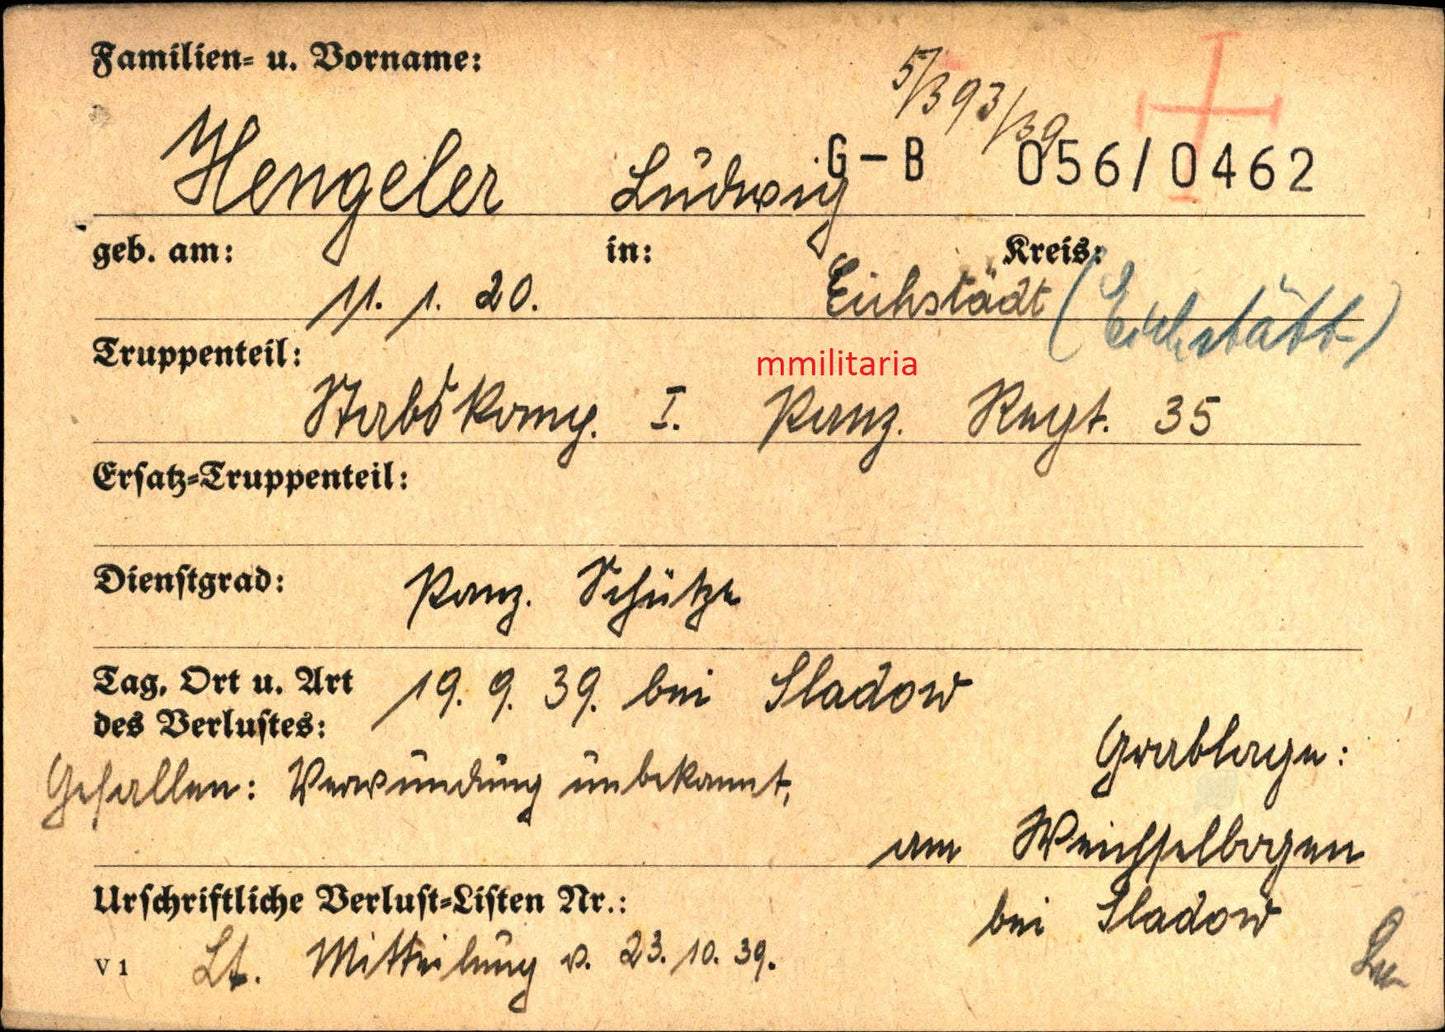 Familien= u. Vorname:
5/393/39
Hengeler Ludwig
G-B 056/0462
geb. am: in: Kreis:
11. 1. 20. Eichstädt (Eichstätt)
Truppenteil:
mmilitaria
Stabskomp. I. Panz. Regt. 35
Ersatz=Truppenteil:
Dienstgrad: Panz. Schütze
Tag, Ort u. Art 19. 9. 39. bei Sladow
des Verlustes:
Gefallen: Verwundung unbekannt,
Grablage:
am Weichselbogen
Urschriftliche Verlust=Listen Nr.:
bei Sladow
V 1 Lt. Mitteilung v. 23. 10. 39.